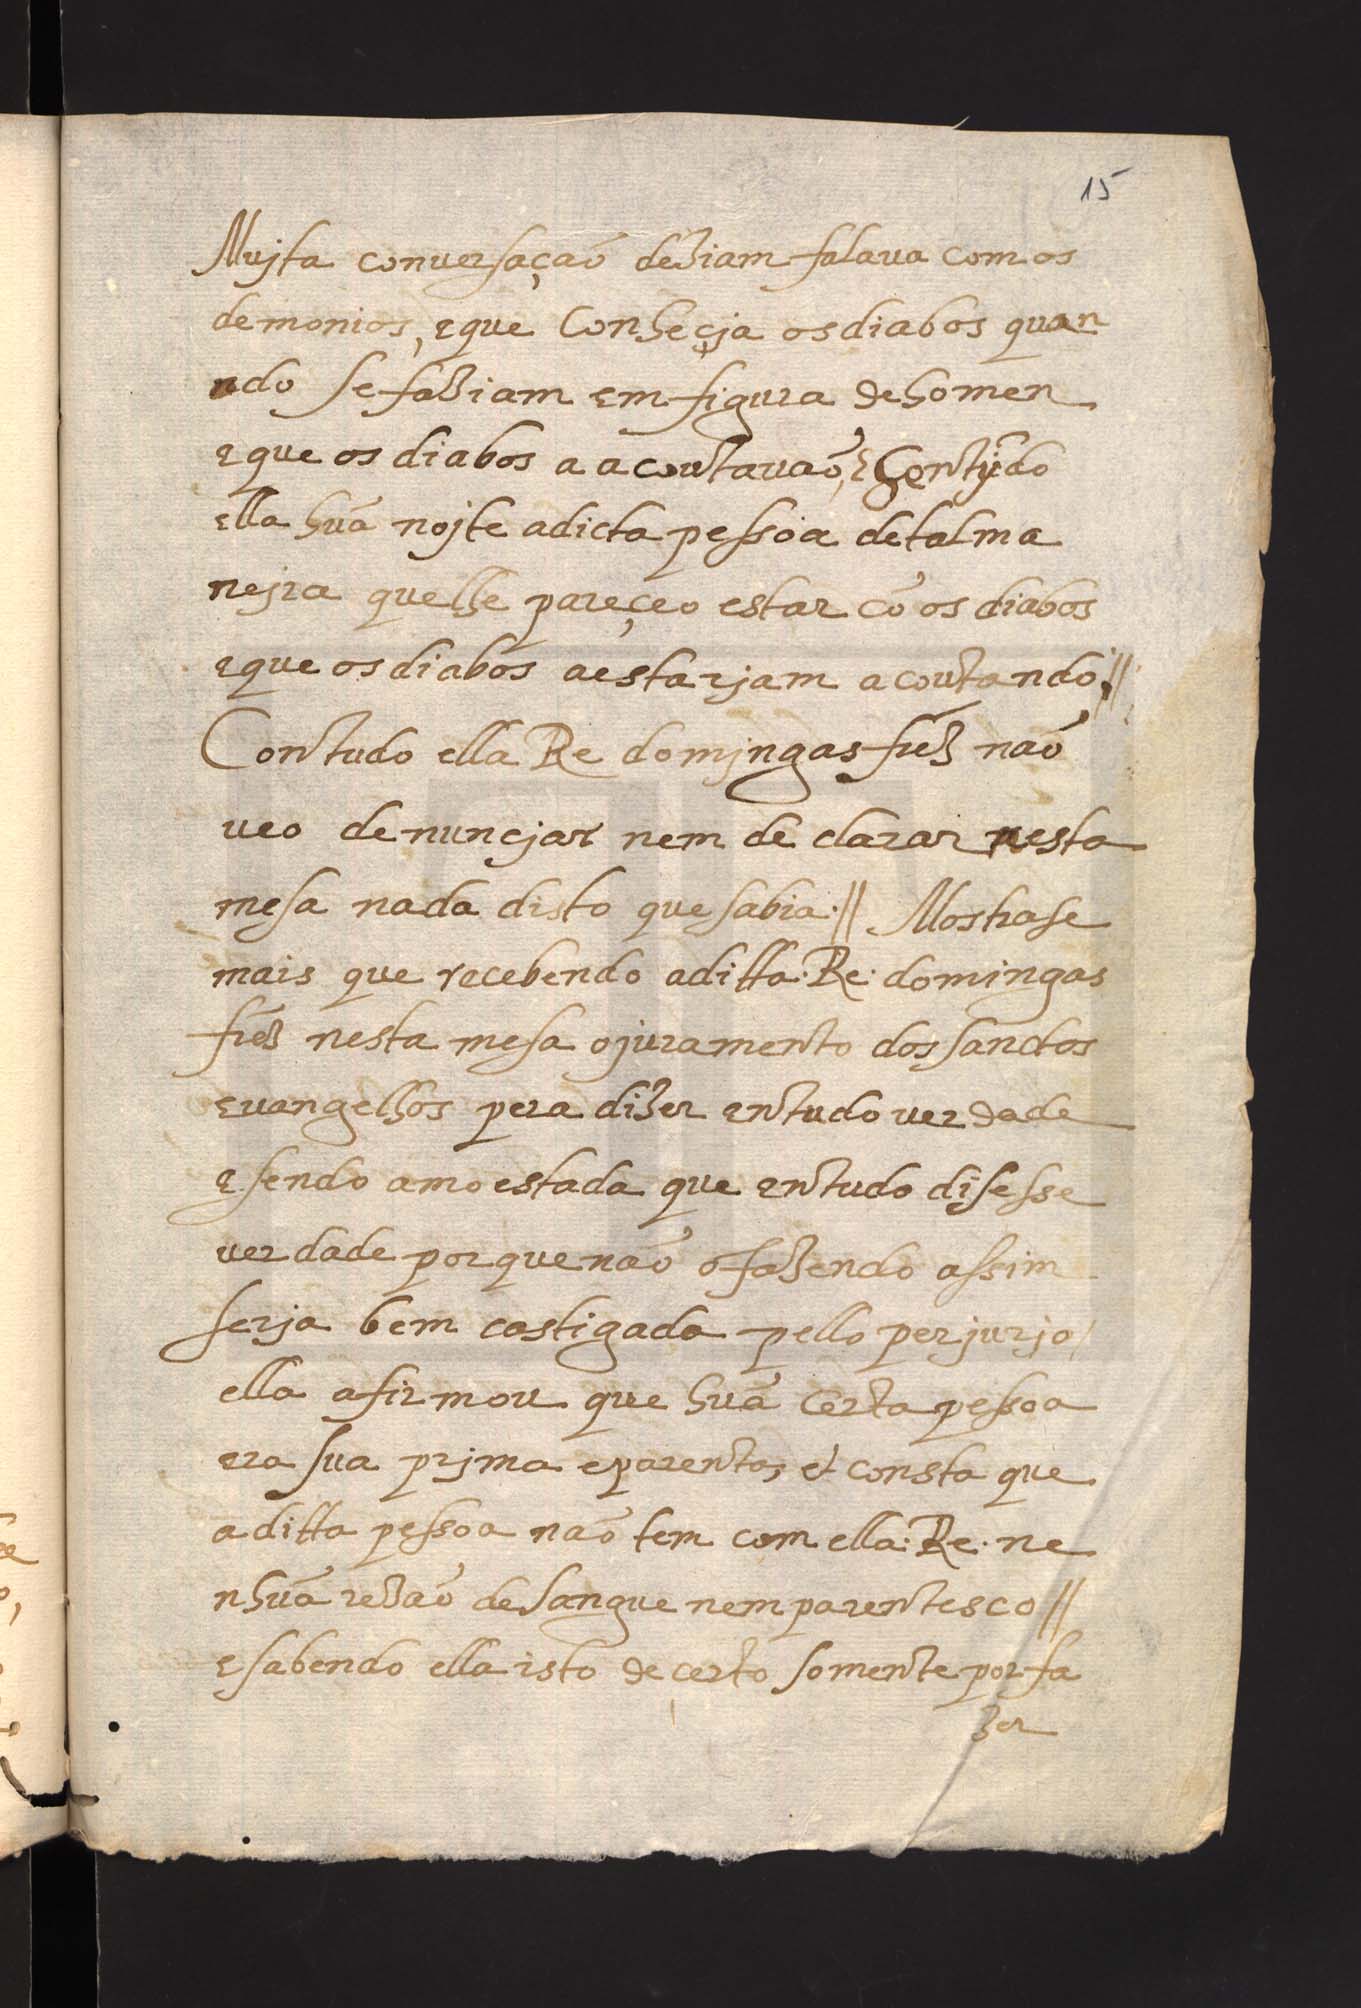 15
Mujta conuersaçaõ deziam falaua com os
demonios, e que Conheçja os diabos quan
ndo se faziam em figura de homen
e que os diabos a acoutauaõ, e Sentjdo
ella huã nojte a dicta pessoa de tal ma
nejra que lhe pareçeo estar cõ os diabos
e que os diabos a estarjam acoutando //
Contudo ella Re domjngas frz naõ
ueo denuncjar nem declarar nesta
mesa nada disto que sabia. // Mostrase
mais que recebendo a ditta. Re. domingas
frz nesta mesa o juramento dos sanctos
euangelhos pera dizer en tudo uerdade
e sendo amoestada que en tudo disesse
uerdade por que naõ o fazendo assim
serja bem castigada pello perjurjo /
ella afirmou que huã certa pessoa
era sua prjma e parenta, et consta que
a ditta pessoa naõ tem com ella. Re. ne
nhuã rezaõ de sangue nem parentesco //
e sabendo ella isto de certo somente por fa
zer